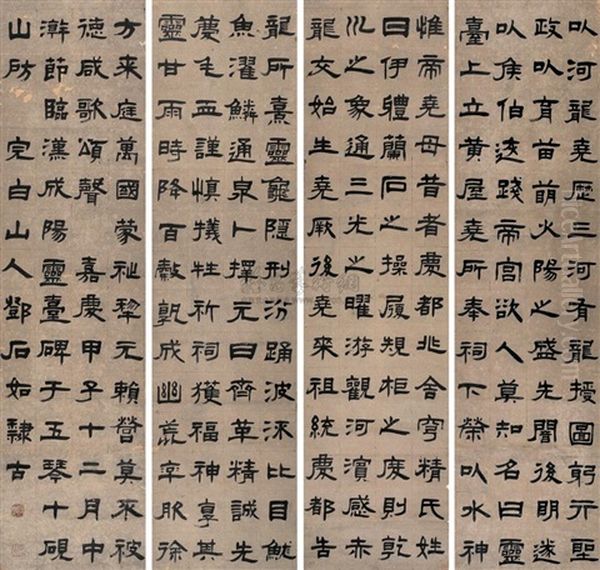 以河龍堯歷三河有龍授圖躬行聖
政以育苗萠火陽之盛先聞後明遂
以侯伯遂踐帝宮欲人莫知名曰靈
臺上立黃屋堯所奉祠下榮以水神
惟帝堯母昔者慶都兆舍穹精氏姓
曰伊體蘭石之操履規柜之度則乾
川之象通三光之曜游觀河濱感赤
龍交始生堯厥後堯來祖統慶都告
龍所熹靈龜隱形汾踊波深比目魷
魚濯鱗通泉卜擇元日齊革精誠先
麃毛血謹慎犧牲祈祠獲福神享其
靈甘雨時降百穀孰成幽荒率服徐
方来庭萬國蒙祉犂元賴營莫不被
德咸歌頌聲 嘉慶甲子十二月中
澣節臨漢成陽靈臺碑于五琴十硯
山房 完白山人鄧石如隸古